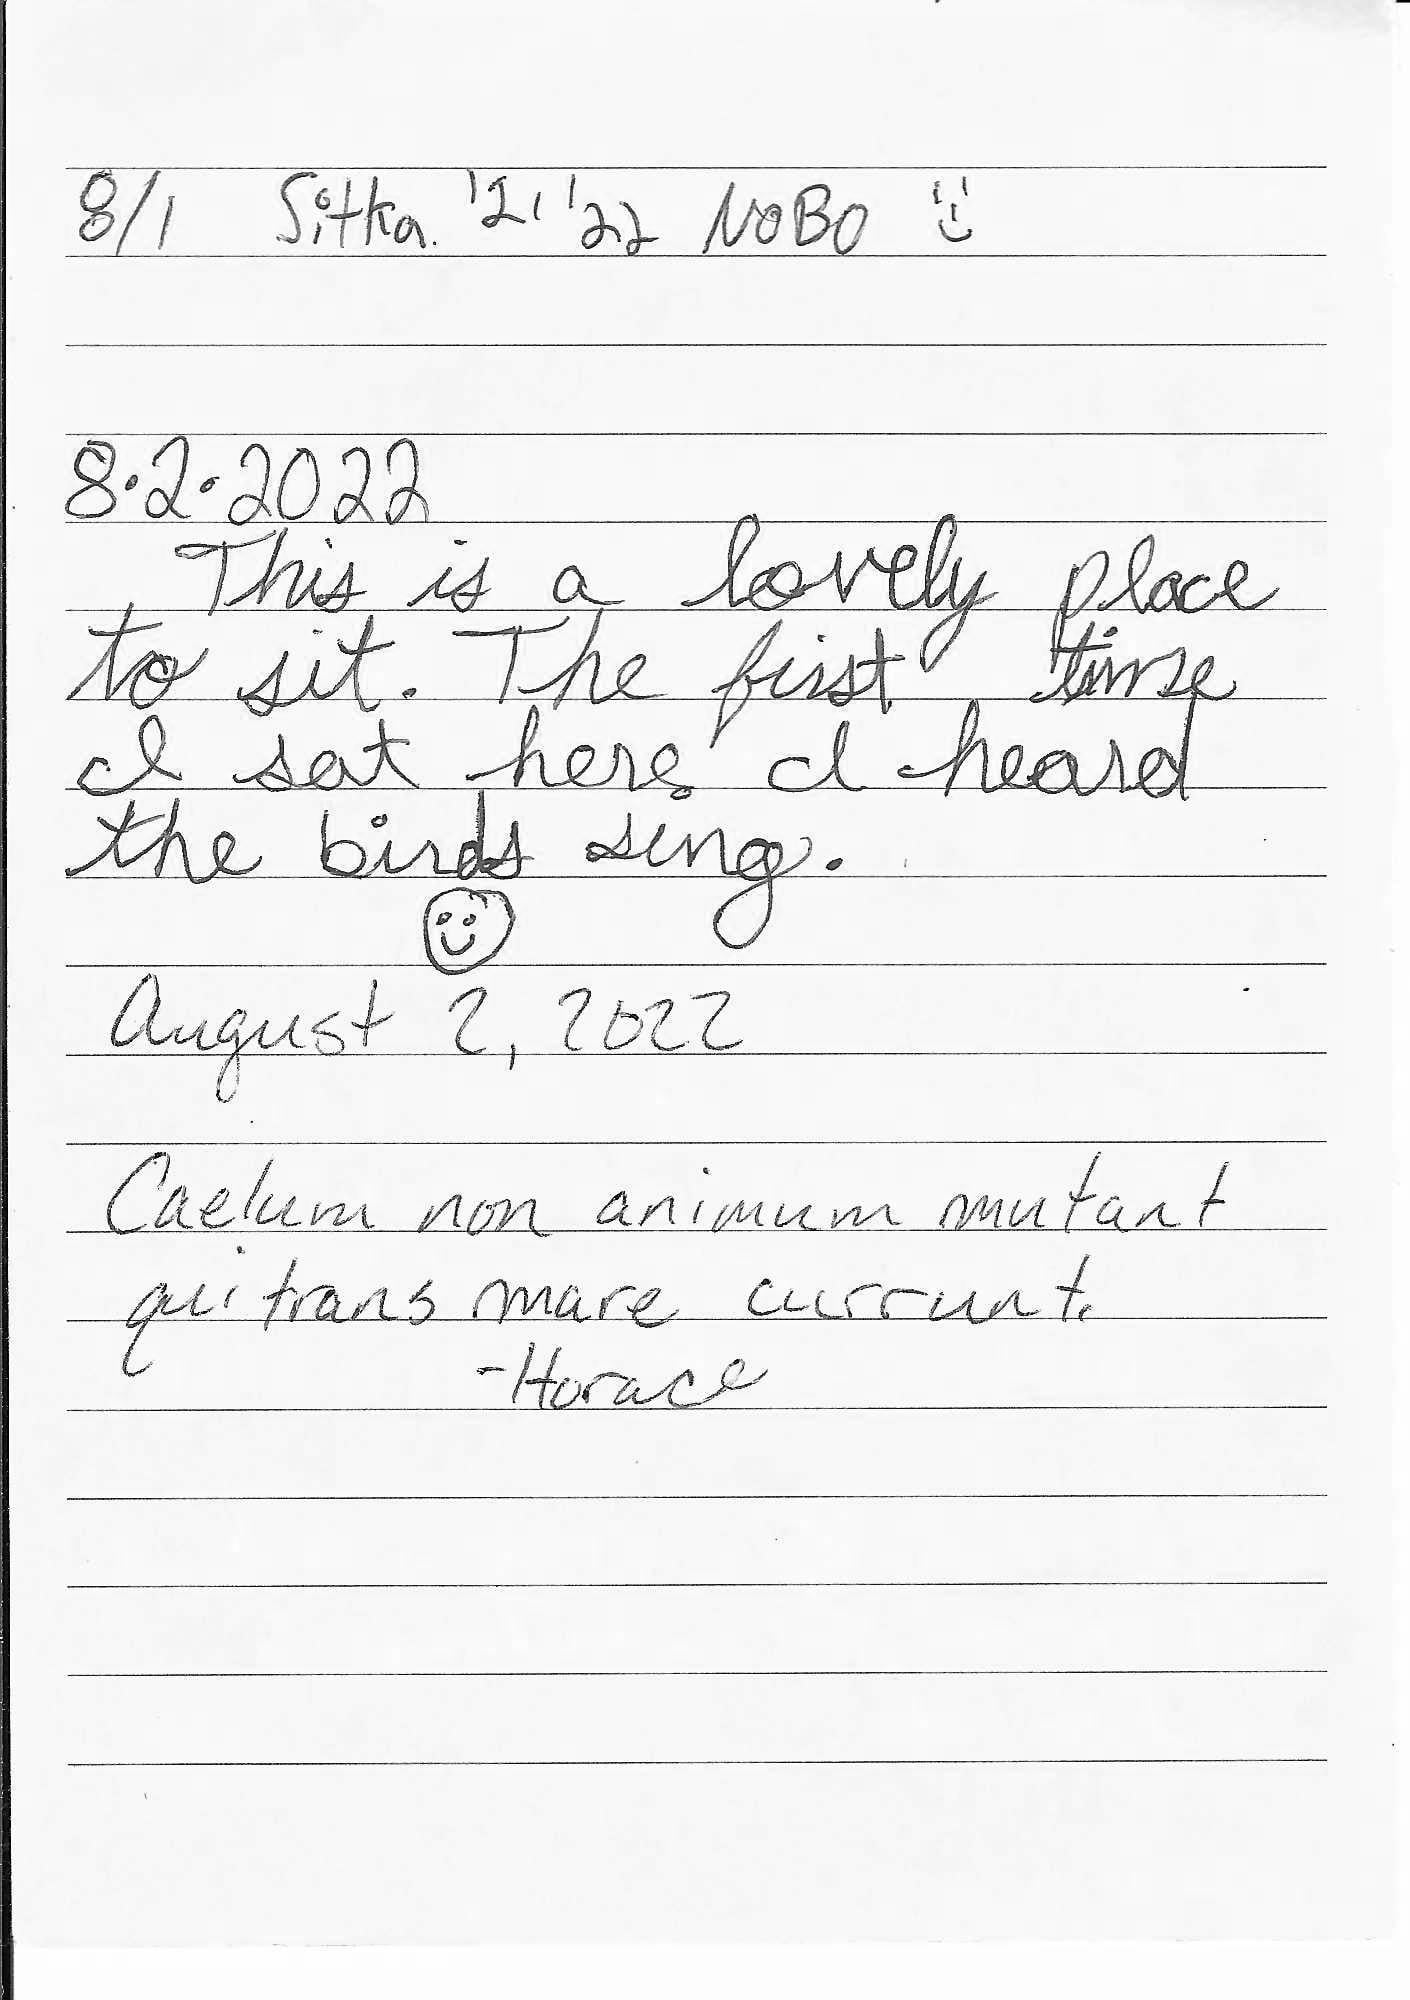 8/1 Sitka. '21 '22 NoBo
8.2.2022
This is a lovely place
to sit. The first time
I sat here, I heard
the birds sing.
August 2, 2022
Caelum non animum mutant
qui trans mare currunt.
-Horace